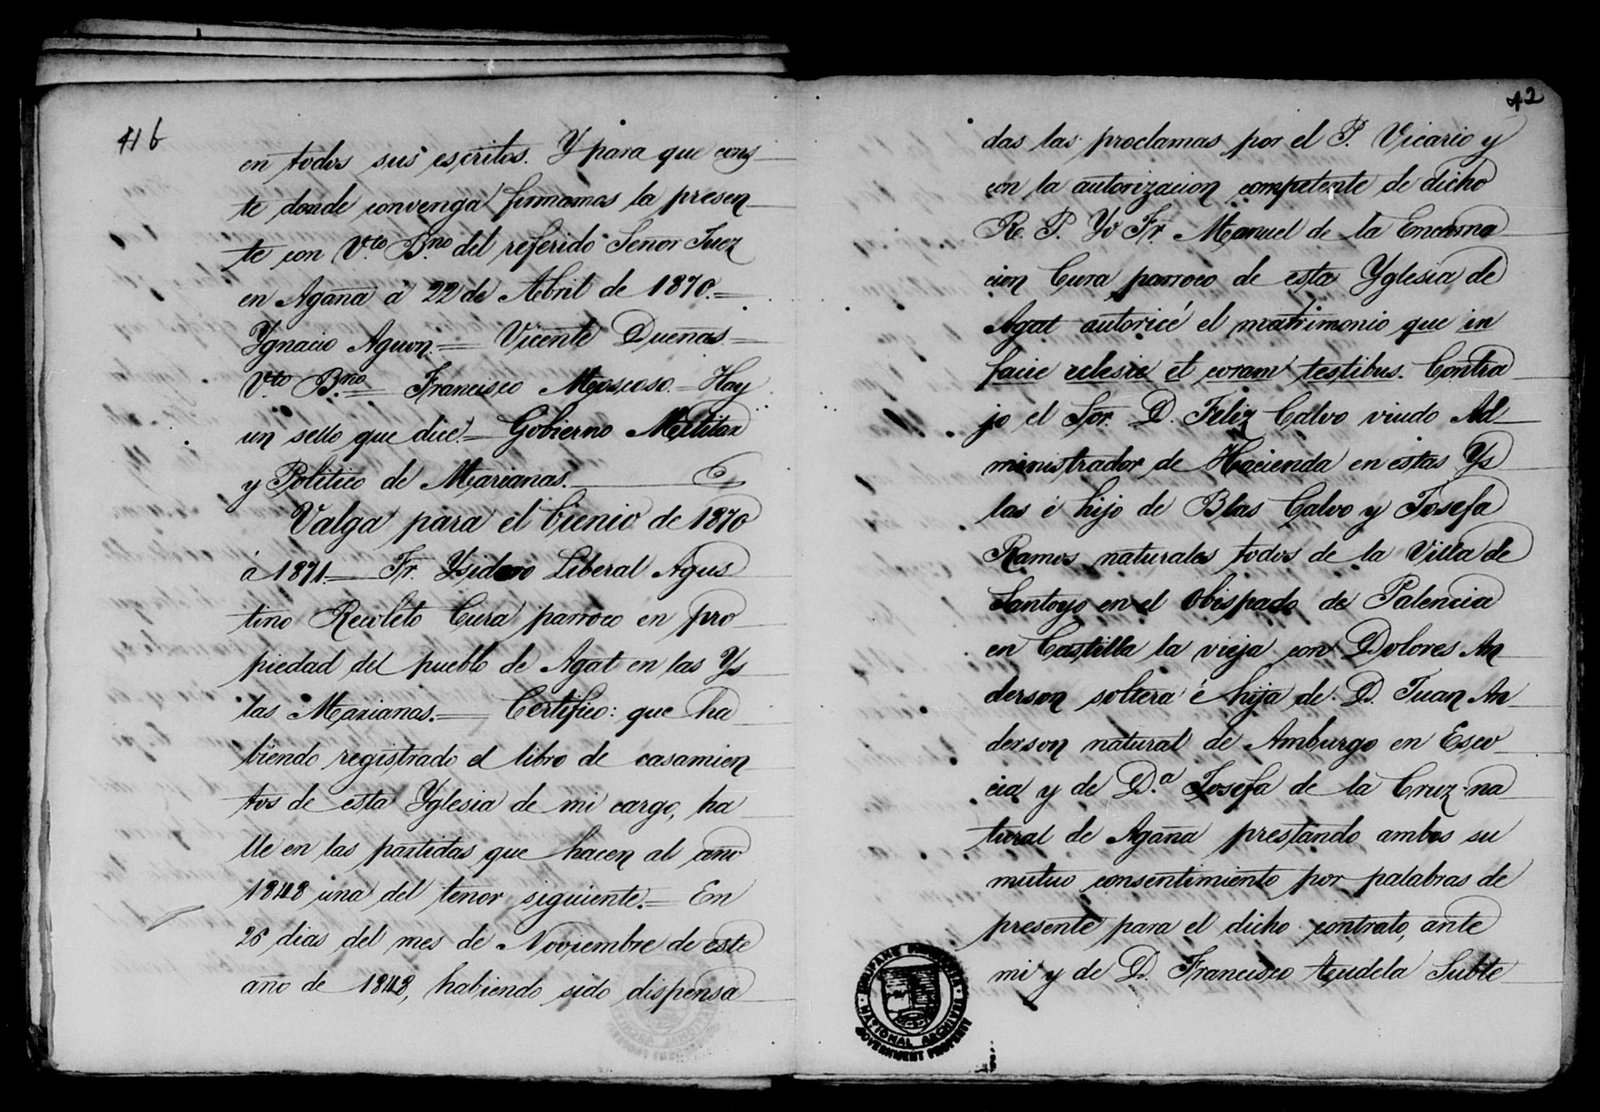 41 b
en todos sus escritos. Y para que cons
te donde convenga firmamos la presen
te con Vto. Bno. del referido Señor Juez
en Agaña á 22 de Abril de 1870.=
Ygnacio Aguon.= Vicente Dueñas=
Vto. Bno.= Francisco Moscoso.= Hay
un sello que dice= Gobierno Militar
y Politico de Marianas.
Valga para el bienio de 1870
á 1871.= Fr. Ysidoro Liberal Agus
tino Recoleto Cura parroco en pro
piedad del pueblo de Agat en las Ys
las Marianas.= Certifico: que ha
biendo registrado el libro de casamien
tos de esta Yglesia de mi cargo, ha
llé en las partidas que hacen al año
1848 una del tenor siguiente.= En
26 dias del mes de Noviembre de este
año de 1848, habiendo sido dispensa
42
das las proclamas por el P. Vicario y
con la autorizacion competente de dicho
R. P. Yo Fr. Manuel de la Encarna
cion Cura parroco de esta Yglesia de
Agat autoricé el matrimonio que in
facie eclesie et coram testibus. Contra
jo el Sor. D. Feliz Calvo viudo Ad
ministrador de Hacienda en estas Ys
las é hijo de Blas Calvo y Josefa
Ramos naturales todos de la Villa de
Santoyo en el Obispado de Palencia
en Castilla la vieja con Dolores An
derson soltera é hija de D. Juan An
derson natural de Amburgo en Esco
cia y de D.ª Josefa de la Cruz na
tural de Agaña prestando ambos su
mutuo consentimiento por palabras de
presente para el dicho contrato, ante
mi y de D. Francisco Tudela Subte
NATIONAL ARCHIVES
GOVERNMENT PROPERTY